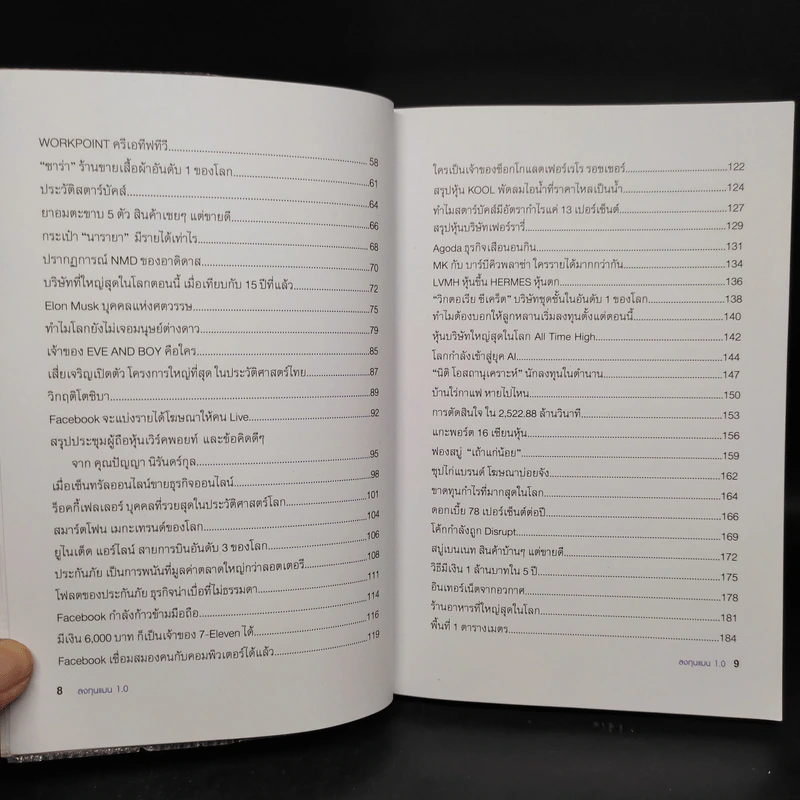 WORKPOINT ครีเอทีฟทีวี 58
"ซาร่า" ร้านขายเสื้อผ้าอันดับ 1 ของโลก 61
ประวัติสตาร์บัคส์ 64
ยาอมตะขาบ 5 ตัว สินค้าเชยๆ แต่ขายดี 66
กระเป๋า "นารายา" มีรายได้เท่าไร 68
ปรากฏการณ์ NMD ของอาดิดาส 70
บริษัทที่ใหญ่สุดในโลกตอนนี้ เมื่อเทียบกับ 15 ปีที่แล้ว 72
Elon Musk บุคคลแห่งศตวรรษ 75
ทำไมโลกยังไม่เจอมนุษย์ต่างดาว 79
เจ้าของ EVE AND BOY คือใคร 85
เสี่ยเจริญเปิดตัว โครงการใหญ่ที่สุด ในประวัติศาสตร์ไทย 87
วิกฤติโตชิบา 89
Facebook จะแบ่งรายได้โฆษณาให้คน Live 92
สรุปประชุมผู้ถือหุ้นเวิร์คพอยท์ และข้อคิดดีๆ
จาก คุณปัญญา นิรันดร์กุล 95
เมื่อเซ็นทรัลออนไลน์ขายธุรกิจออนไลน์ 98
ร็อคกี้เฟลเลอร์ บุคคลที่รวยสุดในประวัติศาสตร์โลก 101
สมาร์ตโฟน เมกะเทรนด์ของโลก 104
ยูไนเต็ด แอร์ไลน์ สายการบินอันดับ 3 ของโลก 106
ประกันภัย เป็นการพนันที่มูลค่าตลาดใหญ่กว่าลอตเตอรี 108
โฟลตของประกันภัย ธุรกิจน่าเบื่อที่ไม่ธรรมดา 111
Facebook กำลังก้าวข้ามมือถือ 114
มีเงิน 6,000 บาท ก็เป็นเจ้าของ 7-Eleven ได้ 116
Facebook เชื่อมสมองคนกับคอมพิวเตอร์ได้แล้ว 119
8 ลงทุนแมน 1.0
ใครเป็นเจ้าของช็อกโกแลตเฟอร์เรโร รอชเชอร์ 122
สรุปหุ้น KOOL พัดลมไอน้ำที่ราคาไหลเป็นน้ำ 124
ทำไมสตาร์บัคส์มีอัตรากำไรแค่ 13 เปอร์เซ็นต์ 127
สรุปหุ้นบริษัทเฟอร์รารี่ 129
Agoda ธุรกิจเสือนอนกิน 131
MK กับ บาร์บีคิวพลาซ่า ใครรายได้มากกว่ากัน 134
LVMH หุ้นขึ้น HERMES หุ้นตก 136
"วิกตอเรีย ซีเครีต" บริษัทชุดชั้นในอันดับ 1 ของโลก 138
ทำไมต้องบอกให้ลูกหลานเริ่มลงทุนตั้งแต่ตอนนี้ 140
หุ้นบริษัทใหญ่สุดในโลก All Time High 142
โลกกำลังเข้าสู่ยุค AI 144
"นิติ โอสถานุเคราะห์" นักลงทุนในตำนาน 147
บ้านไร่กาแฟ หายไปไหน 150
การตัดสินใจ ใน 2,522.88 ล้านวินาที 153
แกะพอร์ต 16 เซียนหุ้น 156
ฟองสบู่ "เถ้าแก่น้อย" 159
ซุปไก่แบรนด์ โฆษณาบ่อยจัง 162
ขาดทุนกำไรที่มากสุดในโลก 164
ดอกเบี้ย 78 เปอร์เซ็นต์ต่อปี 166
โค้กกำลังถูก Disrupt 169
สบู่เบนเนท สินค้าบ้านๆ แต่ขายดี 172
วิธีมีเงิน 1 ล้านบาทใน 5 ปี 175
อินเทอร์เน็ตจากอวกาศ 178
ร้านอาหารที่ใหญ่สุดในโลก 181
พื้นที่ 1 ตารางเมตร 184
ลงทุนแมน 1.0 9